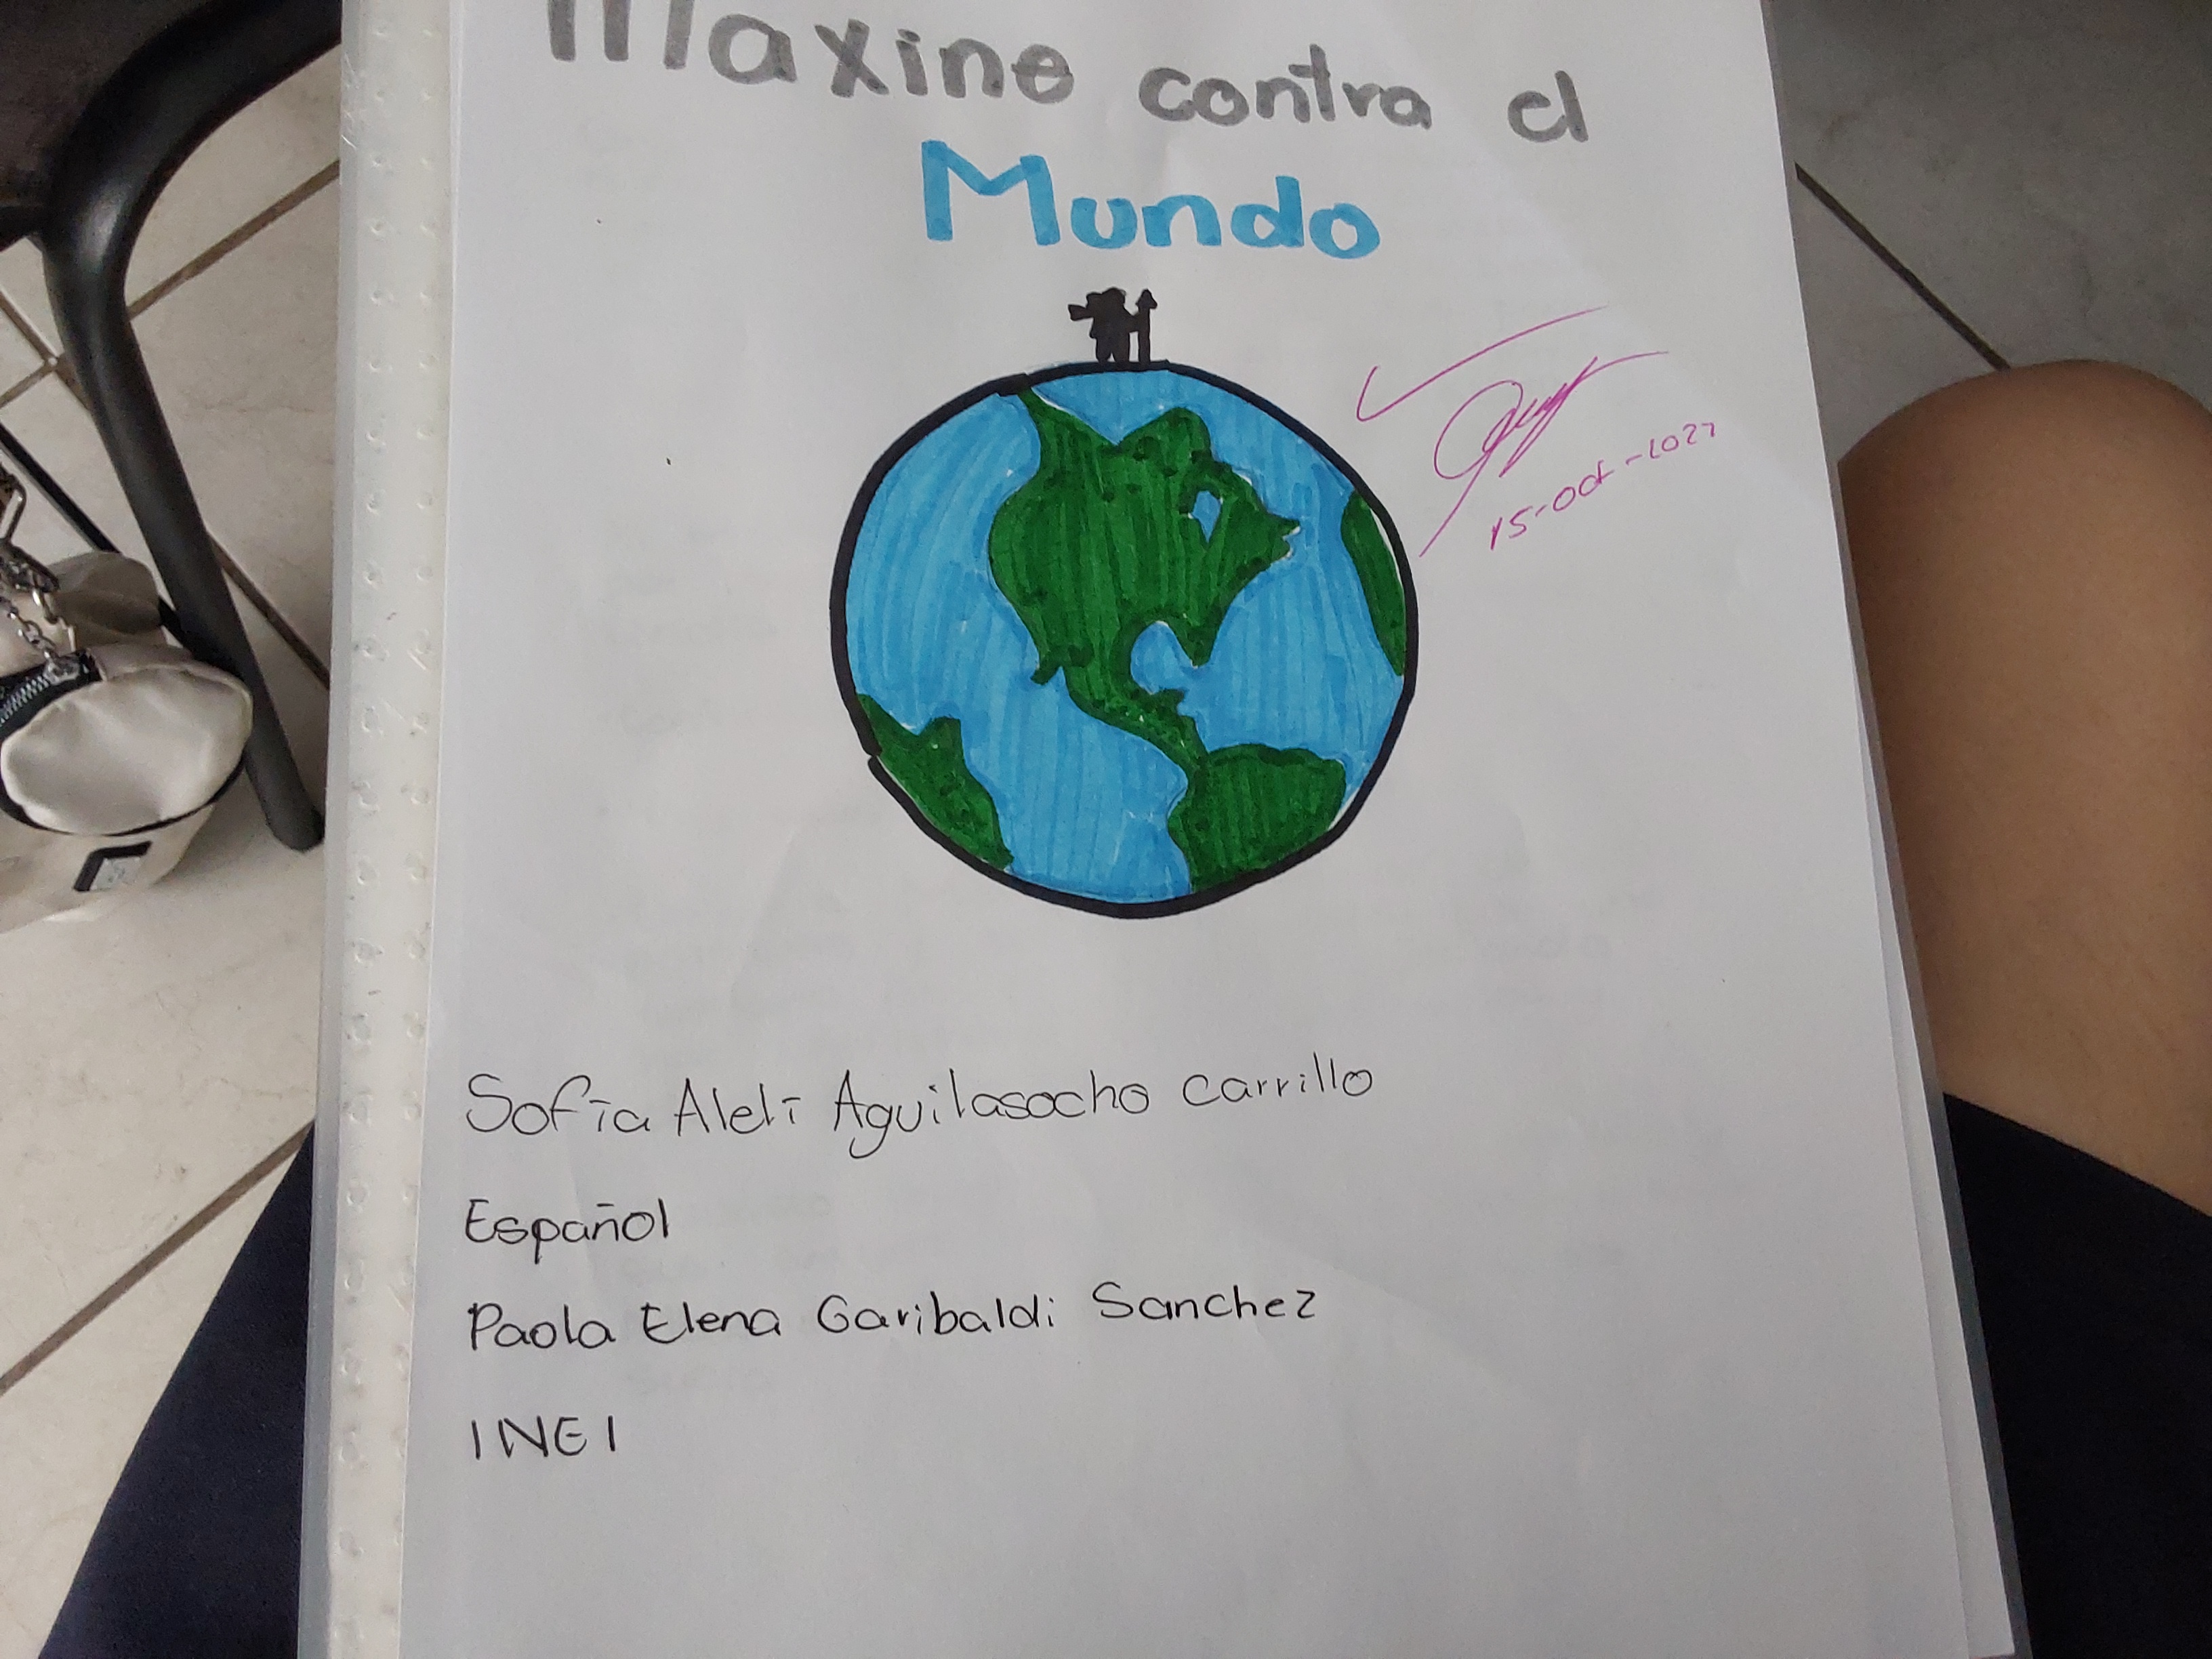 Maxine contra el
Mundo
15-oct-2027
Sofía Alelí Aguilasocho Carrillo
Español
Paola Elena Garibaldi Sanchez
INEI